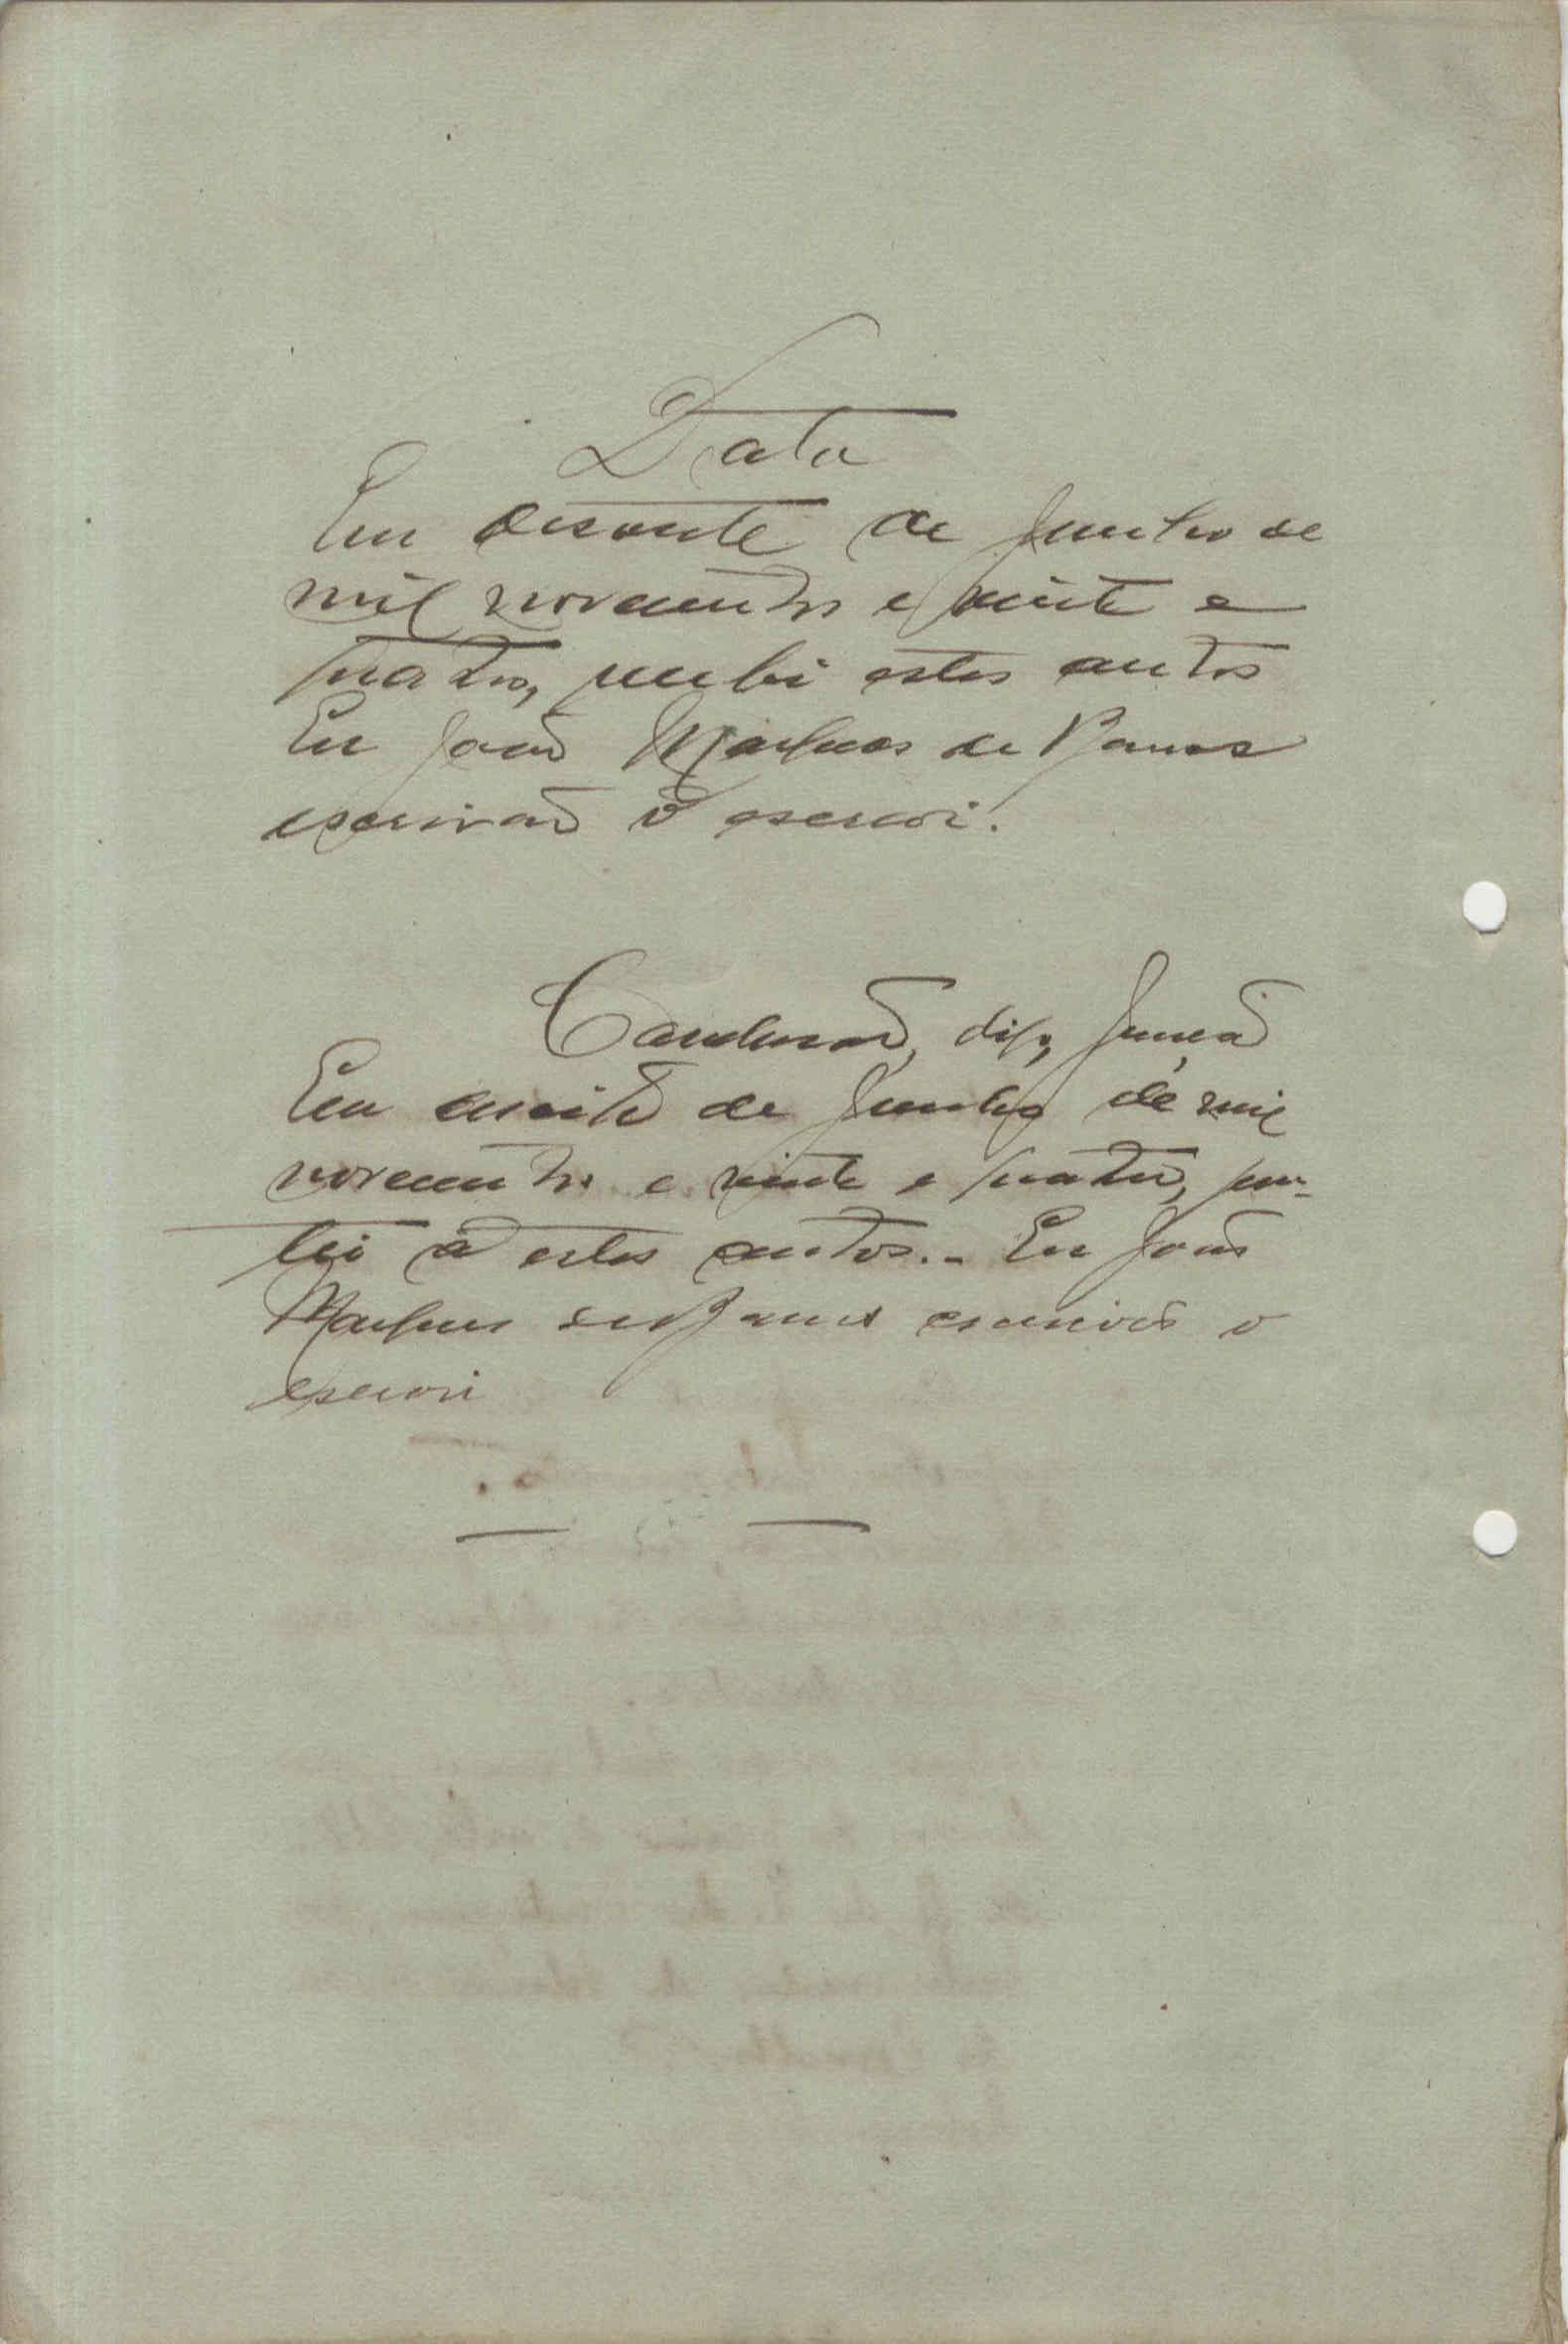 Data
Em desoite de Junho de
mil novecentos e vinte e
quatro, recebi estes autos
Eu João Marques de Barros
escrivão o escrevi.
Conclusão, digo, Junção
Em desoito de Junho de mil
novecentos e vinte e quatro, jun-
tei a estes autos.- Eu João
Marques de Barros escrivão o
escrevi